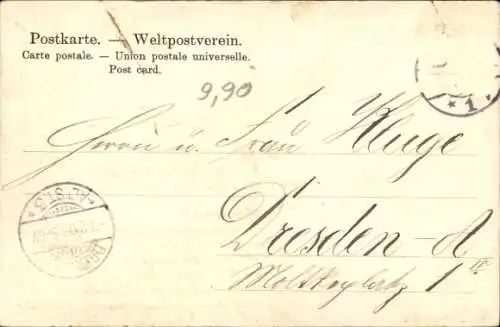 Postkarte. — Weltpostverein.
Carte postale. — Union postale universelle.
Post card.
9,90
* 1 *
Herrn u. Frau Kluge
Dresden-A
Moltkeplatz 1 III
* ALTST. *